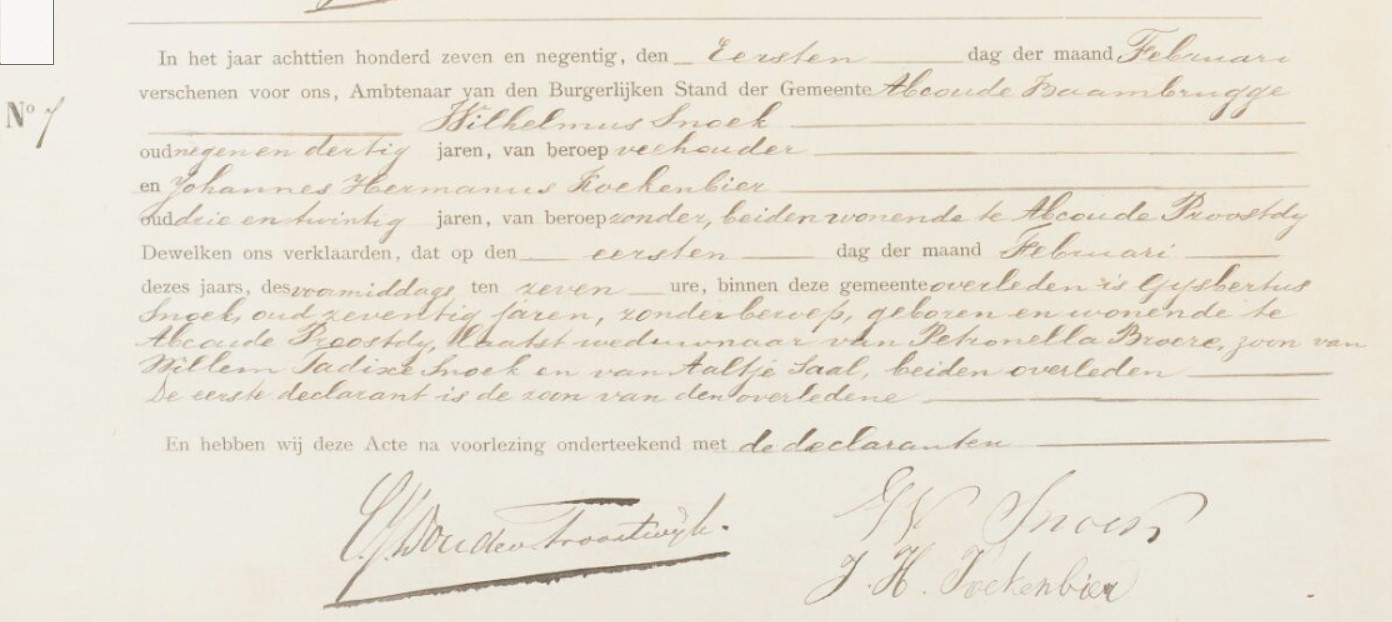 In het jaar achttien honderd zeven en negentig, den Eersten dag der maand Februari
verschenen voor ons, Ambtenaar van den Burgerlijken Stand der Gemeente Abcoude Baambrugge
No 7
Wilhelmus Snoek
oud negen en dertig jaren, van beroep veehouder
en Johannes Hermanus Fockenbier
oud drie en twintig jaren, van beroep zonder, beiden wonende te Abcoude Proostdy
Dewelken ons verklaarden, dat op den eersten dag der maand Februari
dezes jaars, des voormiddags ten zeven ure, binnen deze gemeente overleden is Gysbertus
Snoek, oud zeventig jaren, zonder beroep, geboren en wonende te
Abcoude Proostdy, laatst weduwnaar van Petronella Broere, zoon van
Willem Snoek en van Aaltje Saal, beiden overleden
De eerste declarant is de zoon van den overledene
En hebben wij deze Acte na voorlezing onderteekend met de declaranten
Douden Troostwyk. Snoek
J. H. Fockenbier